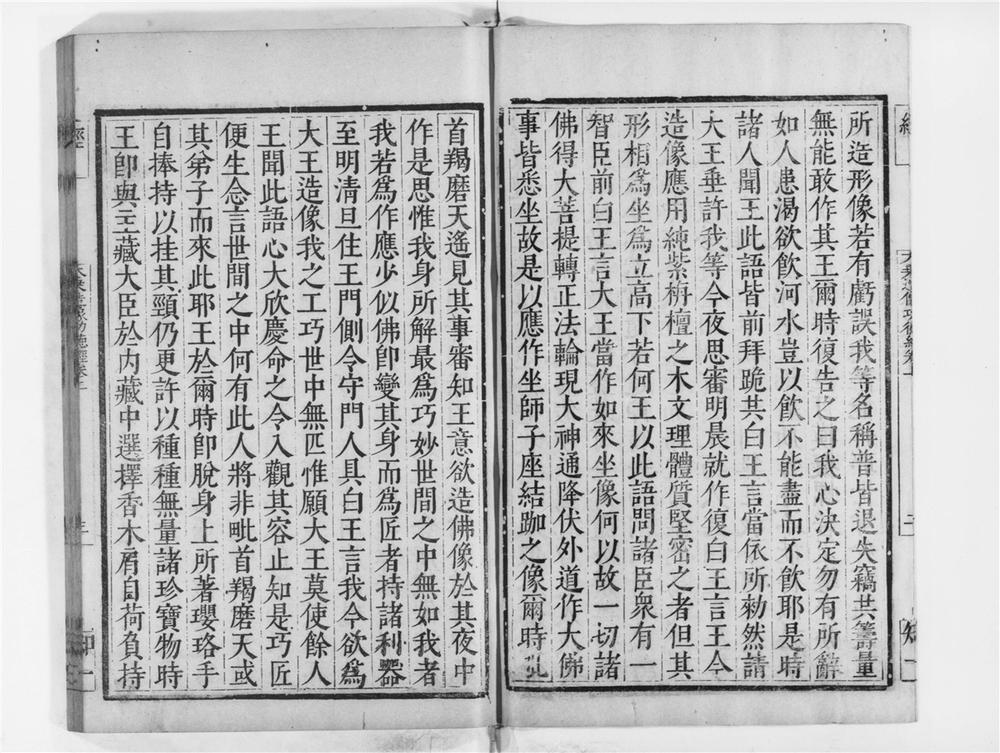 所造形像若有虧誤我等名稱普皆退失竊共籌量
無能敢作其王爾時復告之曰我心決定勿有所辭
如人患渴欲飲河水豈以飲不能盡而不飲耶是時
諸人聞王此語皆前拜跪共白王言當依所勅然請
大王垂許我等今夜思審明晨就作復白王言王今
造像應用純紫栴檀之木文理體質堅密之者但其
形相為坐為立高下若何王以此語問諸臣衆有一
智臣前白王言大王當作如來坐像何以故一切諸
佛得大菩提轉正法輪現大神通降伏外道作大佛
事皆悉坐故是以應作坐師子座結跏之像爾時毗
首羯磨天遙見其事審知王意欲造佛像於其夜中
作是思惟我身所解最為巧妙世間之中無如我者
我若為作應少似佛卽變其身而為匠者持諸利器
至明清旦住王門側令守門人具白王言我今欲為
大王造像我之工巧世中無匹惟願大王莫使餘人
王聞此語心大欣慶命之令入觀其容止知是巧匠
便生念言世間之中何有此人將非毗首羯磨天或
其弟子而來此耶王於爾時卽脫身上所著瓔珞手
自捧持以挂其頸仍更許以種種無量諸珍寶物時
王卽與主藏大臣於內藏中選擇香木肩自荷負持
大乘造像功德經卷上
經